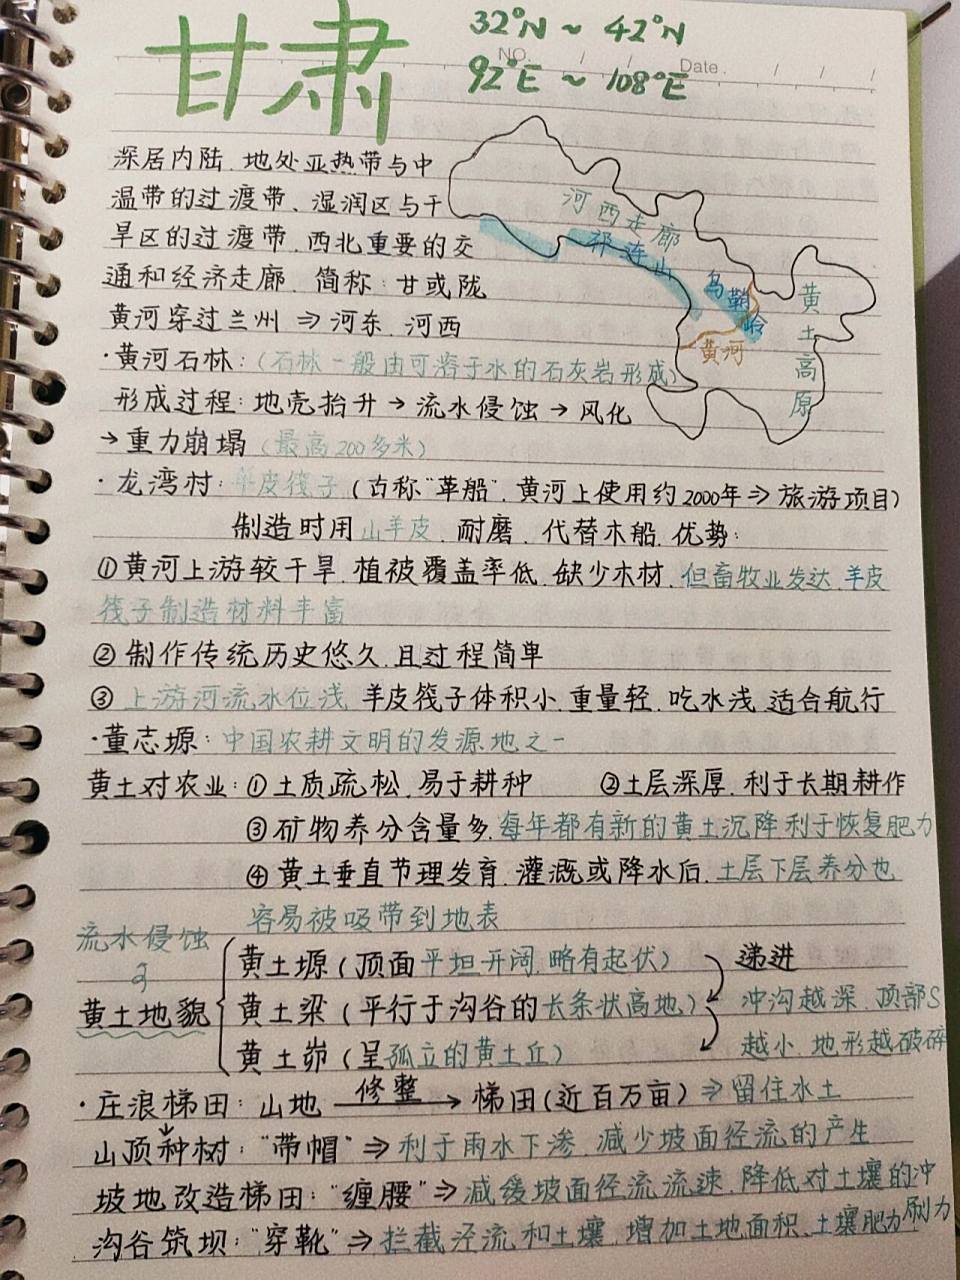 甘肃
32°N ~ 42°N
NO. Date.
92°E ~ 108°E
深居内陆、地处亚热带与中
温带的过渡带、湿润区与干
旱区的过渡带、西北重要的交
通和经济走廊、简称：甘或陇
黄河穿过兰州 ⇒ 河东、河西
河西走廊
祁连山
乌鞘岭
黄河
黄土高原
·黄河石林：（石林一般由可溶于水的石灰岩形成）
形成过程：地壳抬升 → 流水侵蚀 → 风化
→ 重力崩塌（最高200多米）
·龙湾村：羊皮筏子（古称"革船"、黄河上使用约2000年 ⇒ 旅游项目）
制造时用山羊皮、耐磨、代替木船、优势：
①黄河上游较干旱、植被覆盖率低、缺少木材、但畜牧业发达、羊皮
筏子制造材料丰富
②制作传统历史悠久、且过程简单
③上游河流水位浅、羊皮筏子体积小、重量轻、吃水浅、适合航行
·董志塬：中国农耕文明的发源地之一
黄土对农业：①土质疏松、易于耕种 ②土层深厚、利于长期耕作
③矿物养分含量多、每年都有新的黄土沉降利于恢复肥力
④黄土垂直节理发育、灌溉或降水后、土层下层养分也
容易被吸带到地表
流水侵蚀
黄土地貌
黄土塬（顶面平坦开阔、略有起伏） 递进
黄土梁（平行于沟谷的长条状高地） 冲沟越深、顶部S
黄土峁（呈孤立的黄土丘） 越小、地形越破碎
·庄浪梯田：山地 修整 → 梯田（近百万亩）⇒ 留住水土
山顶种树："带帽" ⇒ 利于雨水下渗、减少坡面径流的产生
坡地改造梯田："缠腰" ⇒ 减缓坡面径流流速、降低对土壤的冲刷力
沟谷筑坝："穿靴" ⇒ 拦截泾流和土壤、增加土地面积、土壤肥力